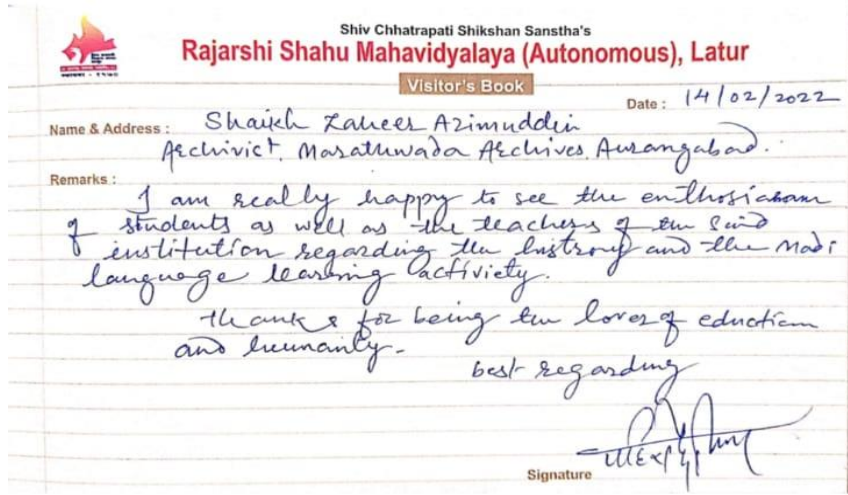 Shiv Chhatrapati Shikshan Sanstha's
Rajarshi Shahu Mahavidyalaya (Autonomous), Latur
Visitor's Book
Date : 14/02/2022
Name & Address : Shaikh Zaheer Azimuddin
Archivict, Marathwada Archives, Aurangabad.
Remarks :
I am really happy to see the enthosiasam
of students as well as the teachers of the said
institution regarding the histroy and the Modi
language learning activiety.
thanks for being the lover of eduction
and humanity.
best regarding
Signature